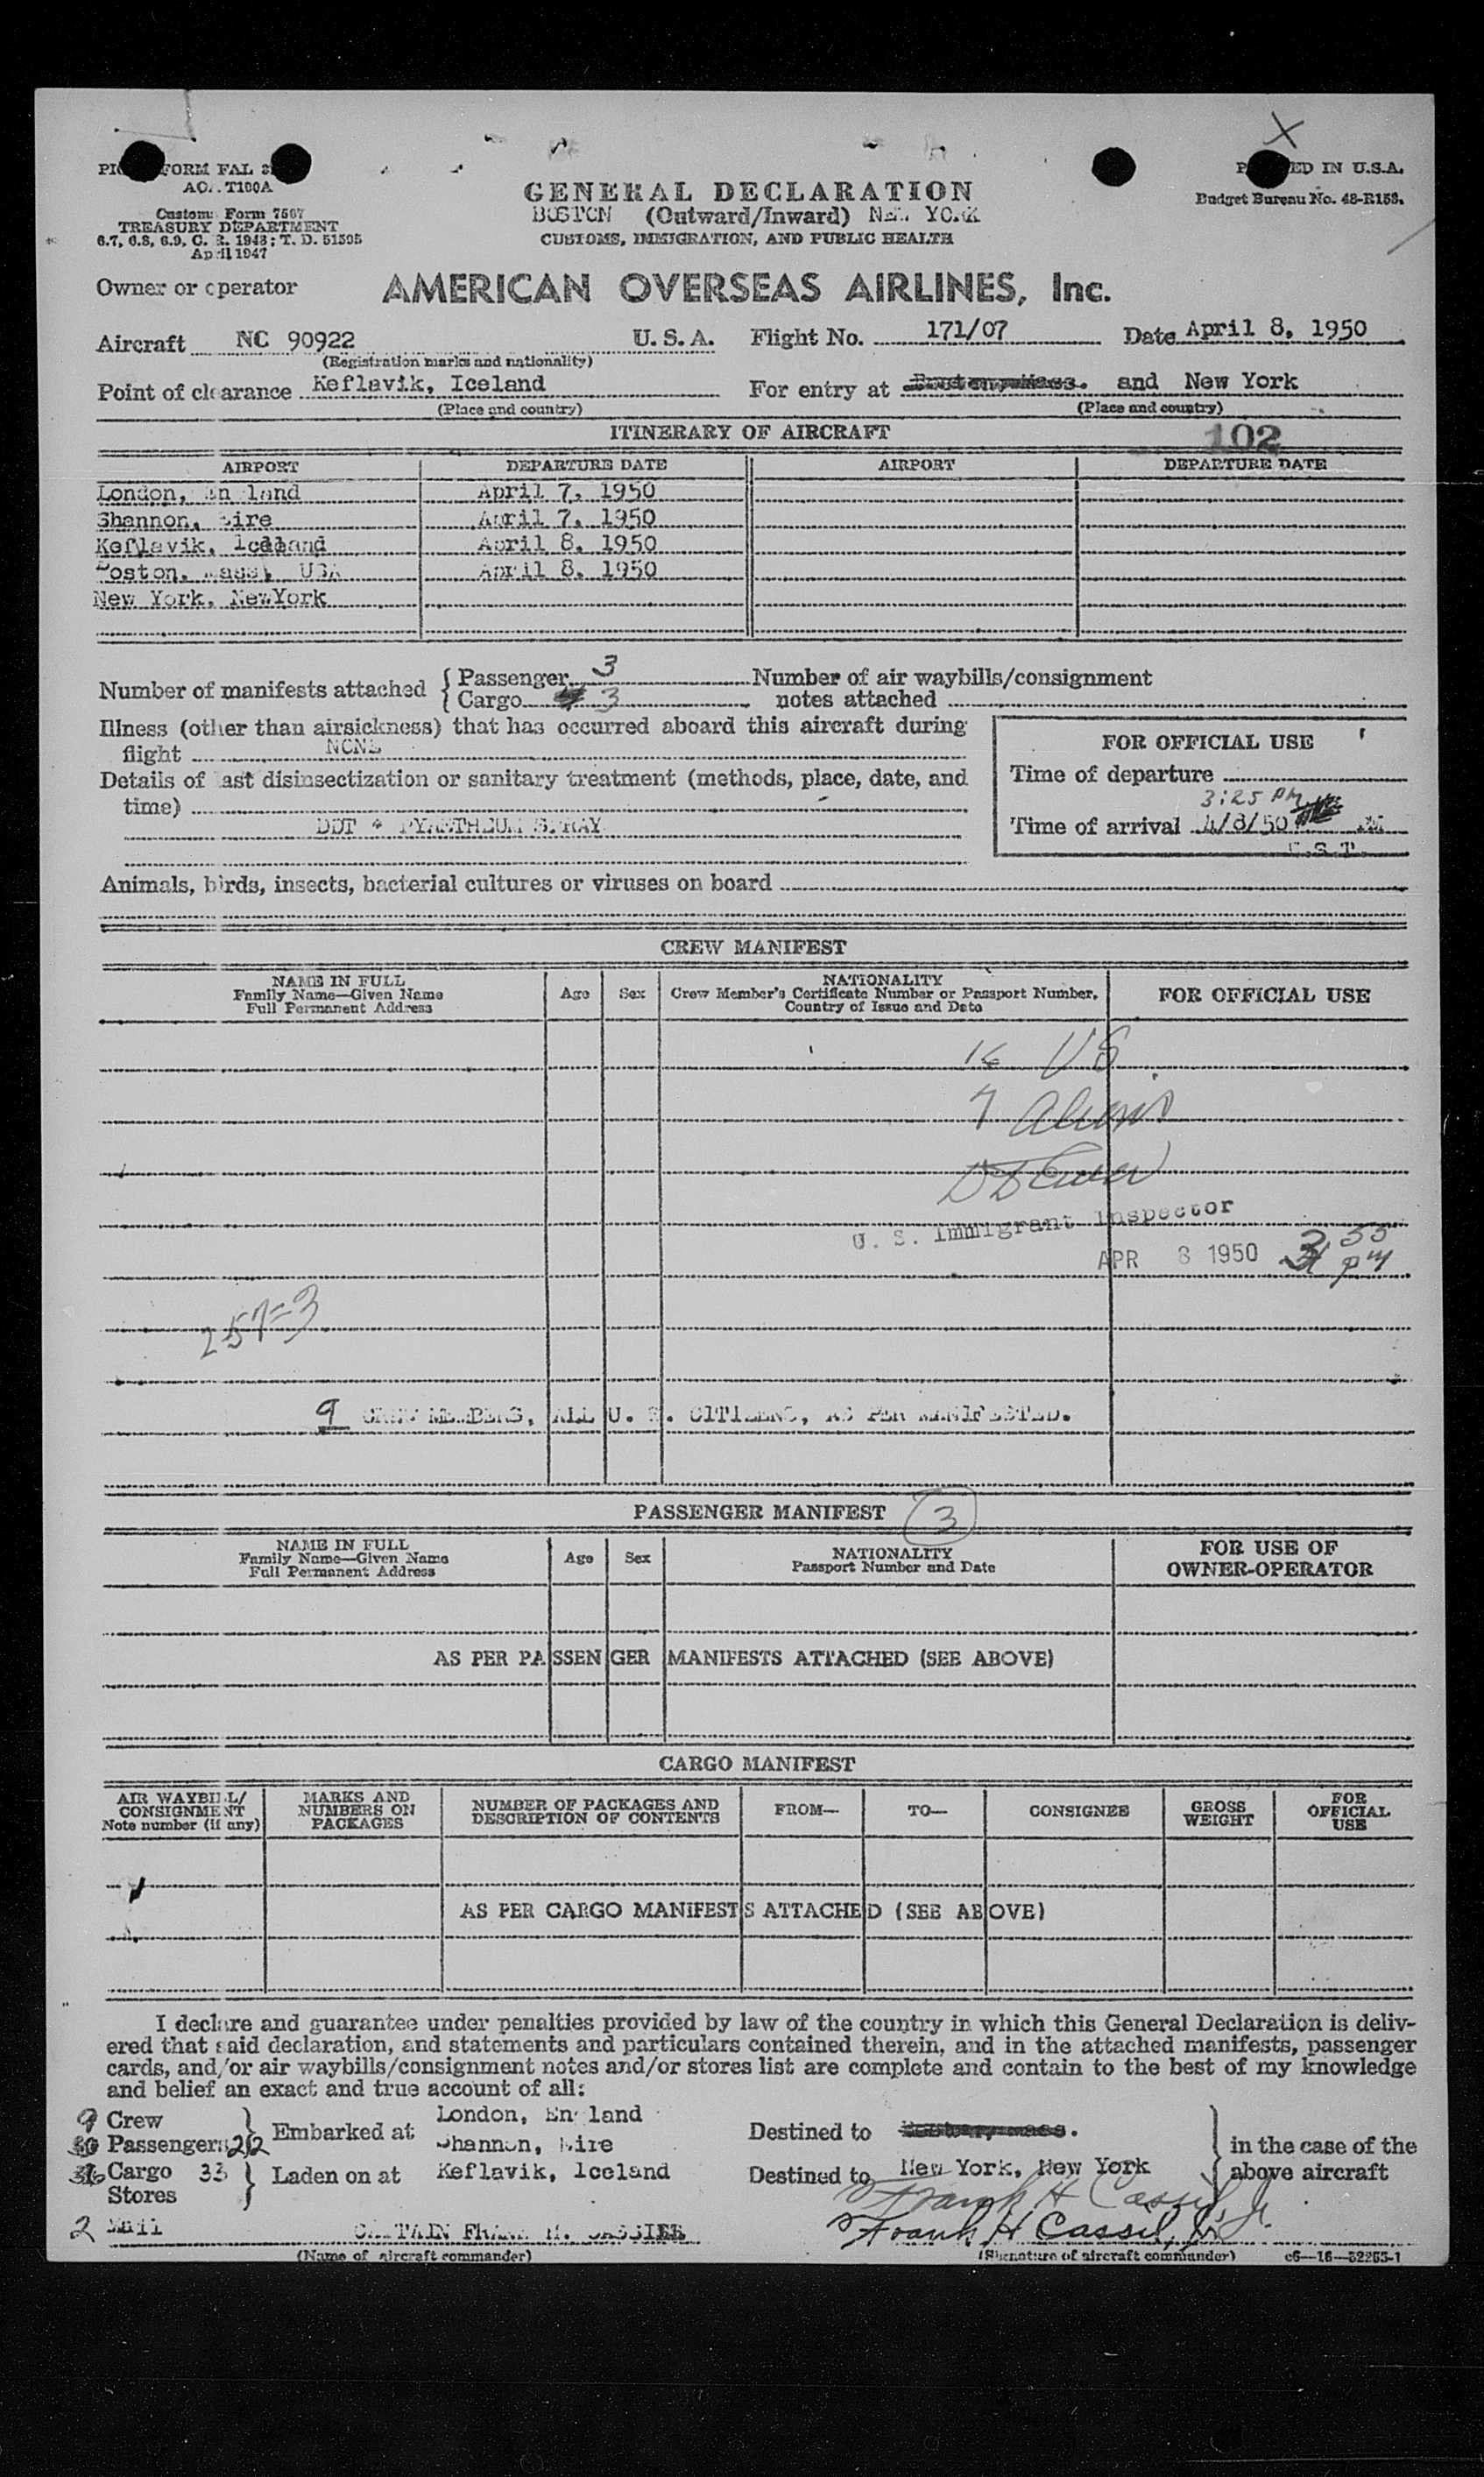 GENERAL DECLARATION
BOSTON (Outward/Inward) NEW YORK
CUSTOMS, IMMIGRATION, AND PUBLIC HEALTH
FORM FAL
T100A
Customs Form 7507
TREASURY DEPARTMENT
6.7, 6.8, 6.9, C. R. 1943; T. D. 51505
April 1947
X
IN U.S.A.
Budget Bureau No. 48-R153.
Owner or operator AMERICAN OVERSEAS AIRLINES, Inc.
Aircraft NC 90922 U. S. A. Flight No. 171/07 Date April 8, 1950
(Registration marks and nationality)
Point of clearance Keflavik, Iceland For entry at and New York
(Place and country) (Place and country)
ITINERARY OF AIRCRAFT 102
AIRPORT DEPARTURE DATE AIRPORT DEPARTURE DATE
London, England April 7, 1950
Shannon, Eire April 7, 1950
Keflavik, Iceland April 8, 1950
Boston, Mass, USA April 8, 1950
New York, NewYork
Number of manifests attached { Passenger 3 Number of air waybills/consignment
Cargo 3 notes attached
Illness (other than airsickness) that has occurred aboard this aircraft during
flight NONE
Details of last disinsectization or sanitary treatment (methods, place, date, and
time)
DDT & SPRAY
FOR OFFICIAL USE
Time of departure
3:25 PM
Time of arrival 4/8/50 M
S.T.
Animals, birds, insects, bacterial cultures or viruses on board
CREW MANIFEST
NAME IN FULL
Family Name—Given Name
Full Permanent Address
Age Sex
NATIONALITY
Crew Member's Certificate Number or Passport Number,
Country of Issue and Date
FOR OFFICIAL USE
16 US
7 Aliens
U. S. Immigrant Inspector
APR 8 1950 3 55 pm
257=3
9 CREW MEMBERS, ALL U. S. CITIZENS, AS PER MANIFESTED.
PASSENGER MANIFEST 3
NAME IN FULL
Family Name—Given Name
Full Permanent Address
Age Sex
NATIONALITY
Passport Number and Date
FOR USE OF
OWNER-OPERATOR
AS PER PASSENGER MANIFESTS ATTACHED (SEE ABOVE)
CARGO MANIFEST
AIR WAYBILL/
CONSIGNMENT
Note number (if any)
MARKS AND
NUMBERS ON
PACKAGES
NUMBER OF PACKAGES AND
DESCRIPTION OF CONTENTS
FROM— TO— CONSIGNEE
GROSS
WEIGHT
FOR
OFFICIAL
USE
AS PER CARGO MANIFESTS ATTACHED (SEE ABOVE)
I declare and guarantee under penalties provided by law of the country in which this General Declaration is deliv-
ered that said declaration, and statements and particulars contained therein, and in the attached manifests, passenger
cards, and/or air waybills/consignment notes and/or stores list are complete and contain to the best of my knowledge
and belief an exact and true account of all:
9 Crew } Embarked at London, England Destined to
Passengers 22 Shannon, Eire
36 Cargo 33 } Laden on at Keflavik, Iceland Destined to New York, New York
Stores
} in the case of the
above aircraft
2 Mail CAPTAIN FRANK H. Frank H Cassel, Jr.
Frank H Cassel, Jr.
(Name of aircraft commander) (Signature of aircraft commander) c6—16—52255-1